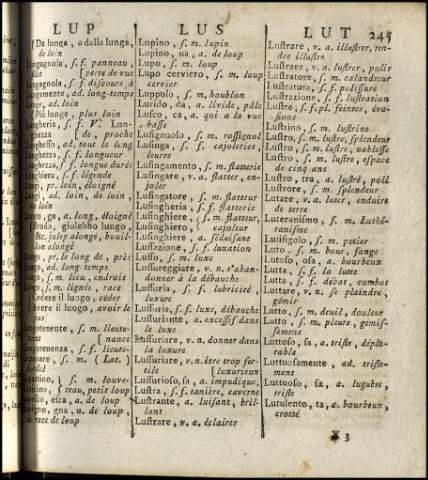 LUP
LUS
LUT
245
(Da lunga, o dalla lunga,
de loin
s. f. panneau,
[perte de vue
s. f. discours à
ad. long-temps
ad. loin
Più lunge, plus loin
s. f. V. Lun-
de, proche
ad. tout le long
s. f. longueur
s. f. longue durée
s. f. légende
pr. loin, éloigné
ad. loin, de loin
loin
ga, a. long, éloigné
giulebbo lungo,
julep alongé, bouil-
lon alongé
pr. le long de, près
ad. long-temps
s. m. lieu, endroit
s. m. lignée, race
Cedere il luogo, céder
il luogo, avoir le
s. m. lieute-
[nance
s. f. lieute-
s. m. (Lat.)
s. m. louve-
teau, petit loup
a. de loup
gna, a. de loup,
de race de loup
Lupino, s. m. lupin
Lupino, na, a. de loup
Lupo, s. m. loup
Lupo cerviero, s. m. loup
cervier
Luppolo, s. m. houblon
Lurido, da, a. livide, pâle
Lusco, ca, a. qui a la vue
basse
Lusignuolo, s. m. rossignol
Lusinga, s. f. cajolerie,
leurre
Lusingamento, s. m. flatterie
Lusingare, v. a. flatter, en-
joler
Lusingatore, s. m. flatteur
Lusingheria, s. f. flatterie
Lusinghiere, s. m. flatteur,
Lusinghiero, cajoleur
Lusinghiere, a. séduisant
Lussazione, s. f. luxation
Lusso, s. m. luxe
Lussureggiare, v. n. s'aban-
donner à la débauche
Lussuria, s. f. lubricité,
luxure
Lussuria, s. f. luxe, débauche
Lussuriante, a. excessif dans
le luxe
Lussuriare, v. n. donner dans
la luxure
Lussuriare, v. n. être trop fer-
tile [luxurieux
Lussurioso, sa, a. impudique,
Lustra, s. f. tanière, caverne
Lustrante, a. luisant, bril-
lant
Lustrare, v. a. éclairer
Lustrare, v. a. illustrer, ren-
dre illustre
Lustrare, v. a. lustrer, polir
Lustratore, s. m. calandreur
Lustratura, s. f. polissure
Lustrazione, s. f. lustration
Lustre, s. f. pl. feintes, éva-
sions
Lustrino, s. m. lustrine
Lustro, s. m. lustre, splendeur
Lustro, s. m. lustre, noblesse
Lustro, s. m. lustre, espace
de cinq ans
Lustro, tra, a. lustré, poli
Lustrore, s. m. splendeur
Lutare, v. a. luter, enduire
de terre
Luteranismo, s. m. Luthé-
ranisme
Lutifigolo, s. m. potier
Luto, s. m. boue, fange
Lutoso, osa, a. bourbeux
Lutta, s. f. la lutte
Lutta, s. f. débat, combat
Luttare, v. n. se plaindre,
gémir
Lutto, s. m. deuil, douleur
Lutto, s. m. pleurs, gémis-
semens
Luttoso, sa, a. triste, déplo-
rable
Luttuosamente, ad. triste-
ment
Luttuoso, sa, a. lugubre,
triste
Lutulento, ta, a. bourbeux,
crotté
X 3